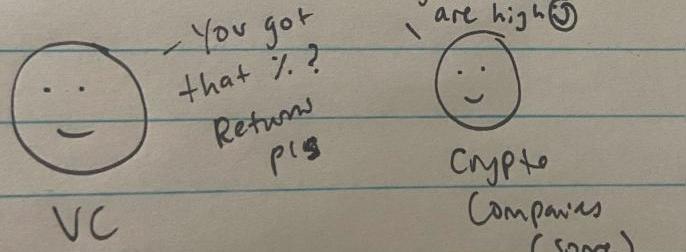 You got
that %?
Returns
pls
VC
are high
Crypto
Companies
(some)